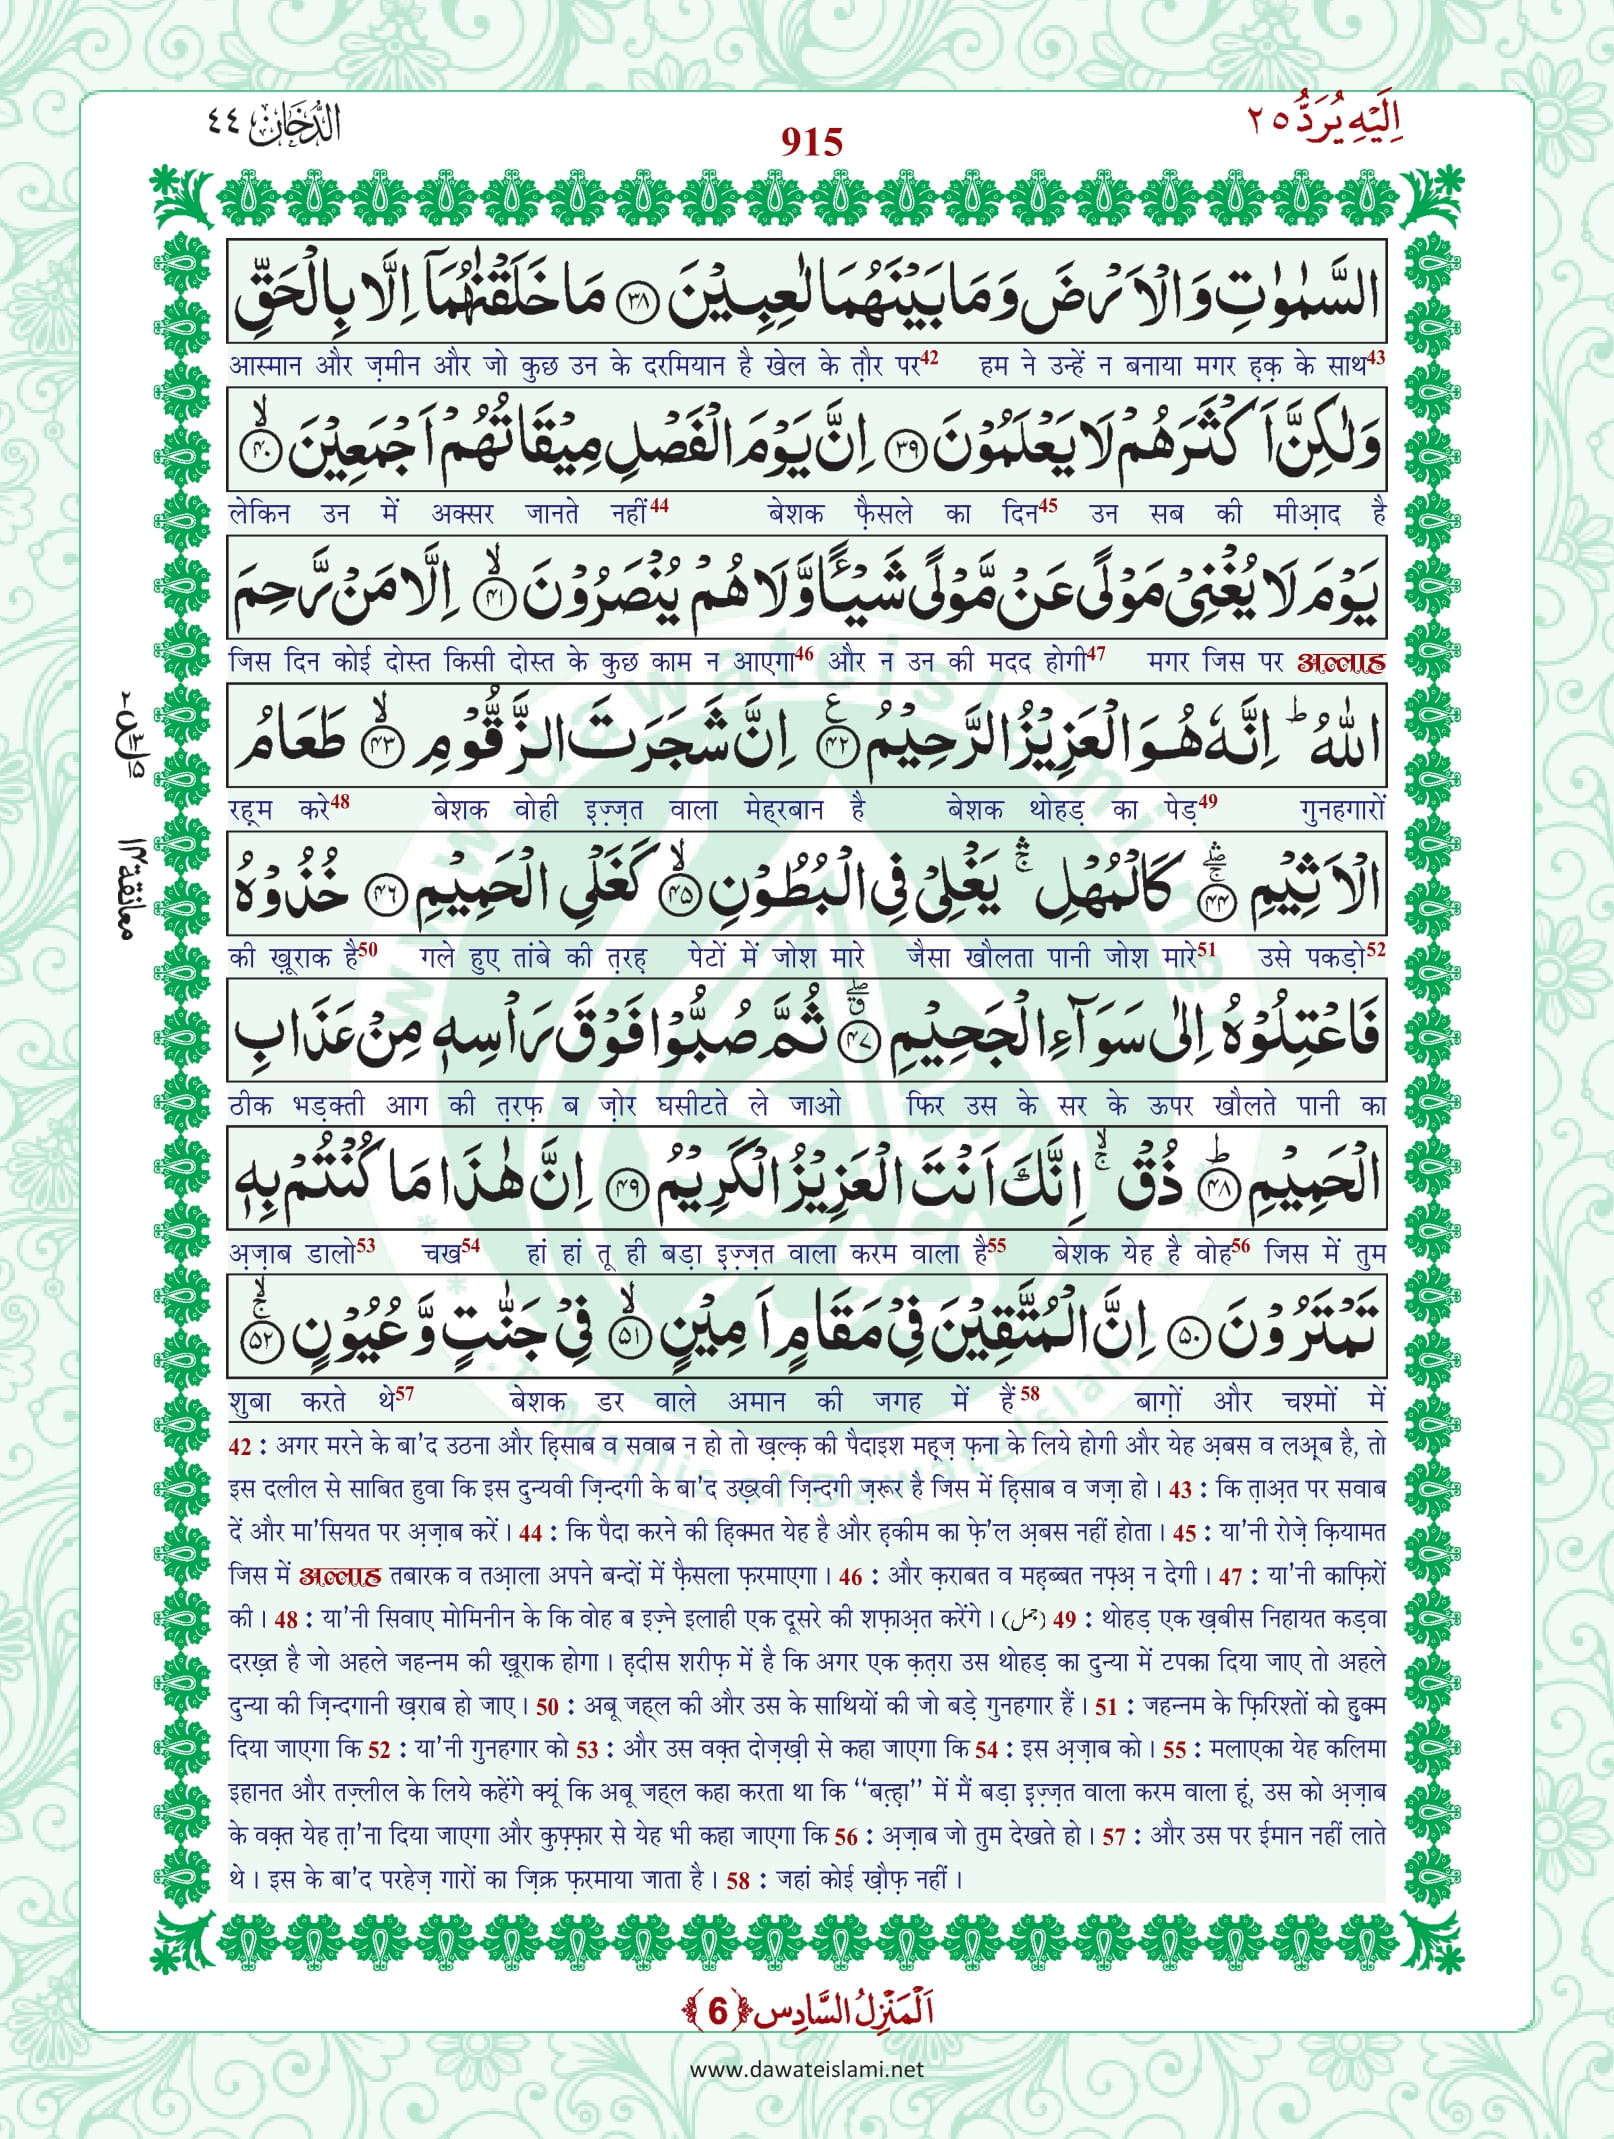 اَلدُّخَان ٤٤
915
اِلَيْهِ يُرَدُّ ٢٥
السَّمٰوٰتِ وَ الْاَرْضَ وَ مَا بَيْنَهُمَا لٰعِبِيْنَ ﴿۳۸﴾ مَا خَلَقْنٰهُمَاۤ اِلَّا بِالْحَقِّ
आस्मान और ज़मीन और जो कुछ उन के दरमियान है खेल के त़ौर पर42 हम ने उन्हें न बनाया मगर ह़क़ के साथ43
وَلٰكِنَّ اَكْثَرَهُمْ لَا يَعْلَمُوْنَ ﴿۳۹﴾ اِنَّ يَوْمَ الْفَصْلِ مِيْقَاتُهُمْ اَجْمَعِيْنَ ﴿ۙ۴۰﴾
लेकिन उन में अक्सर जानते नहीं44 बेशक फ़ैसले का दिन45 उन सब की मीआ़द है
يَوْمَ لَا يُغْنِيْ مَوْلًى عَنْ مَّوْلًى شَيْـًٔا وَّ لَا هُمْ يُنْصَرُوْنَ ﴿ۙ۴۱﴾ اِلَّا مَنْ رَّحِمَ
जिस दिन कोई दोस्त किसी दोस्त के कुछ काम न आएगा46 और न उन की मदद होगी47 मगर जिस पर अल्लाह
اللّٰهُ ؕ اِنَّهٗ هُوَ الْعَزِيْزُ الرَّحِيْمُ ﴿۴۲﴾ ع اِنَّ شَجَرَتَ الزَّقُّوْمِ ﴿ۙ۴۳﴾ طَعَامُ
रह़्म करे48 बेशक वोही इ़ज़्ज़त वाला मेह्‌रबान है बेशक थोहड़ का पेड़49 गुनहगारों
الْاَثِيْمِ ﴿ۚۖۛ۴۴﴾ كَالْمُهْلِ ۛۚ يَغْلِيْ فِي الْبُطُوْنِ ﴿ۙ۴۵﴾ كَغَلْيِ الْحَمِيْمِ ﴿۴۶﴾ خُذُوْهُ
معانقة ١٣
की ख़ूराक है50 गले हुए तांबे की त़रह़ पेटों में जोश मारे जैसा खौलता पानी जोश मारे51 उसे पकड़ो52
فَاعْتِلُوْهُ اِلٰى سَوَآءِ الْجَحِيْمِ ﴿ۖۗ۴۷﴾ ثُمَّ صُبُّوْا فَوْقَ رَاْسِهٖ مِنْ عَذَابِ
ठीक भड़क्ती आग की त़रफ़ ब ज़ोर घसीटते ले जाओ फिर उस के सर के ऊपर खौलते पानी का
الْحَمِيْمِ ﴿ؕ۴۸﴾ ذُقْ ۙۚ اِنَّكَ اَنْتَ الْعَزِيْزُ الْكَرِيْمُ ﴿۴۹﴾ اِنَّ هٰذَا مَا كُنْتُمْ بِهٖ
अ़ज़ाब डालो53 चख54 हां हां तू ही बड़ा इ़ज़्ज़त वाला करम वाला है55 बेशक येह है वोह56 जिस में तुम
تَمْتَرُوْنَ ﴿۵۰﴾ اِنَّ الْمُتَّقِيْنَ فِيْ مَقَامٍ اَمِيْنٍ ﴿ۙ۵۱﴾ فِيْ جَنّٰتٍ وَّ عُيُوْنٍ ﴿ۚۙ۵۲﴾
शुबा करते थे57 बेशक डर वाले अमान की जगह में हैं58 बाग़ों और चश्मों में
42 : अगर मरने के बा'द उठना और ह़िसाब व सवाब न हो तो ख़ल्क़ की पैदाइश मह़्ज़ फ़ना के लिये होगी और येह अ़बस व लअ़्‌ब है, तो
इस दलील से साबित हुवा कि इस दुन्यवी ज़िन्दगी के बा'द उख़्रवी ज़िन्दगी ज़रूर है जिस में ह़िसाब व जज़ा हो। 43 : कि त़ाअ़त पर सवाब
दें और मा'सियत पर अ़ज़ाब करें। 44 : कि पैदा करने की ह़िक्मत येह है और ह़कीम का फे़'ल अ़बस नहीं होता। 45 : या'नी रोज़े क़ियामत
जिस में अल्लाह तबारक व तआ़ला अपने बन्दों में फ़ैसला फ़रमाएगा। 46 : और क़राबत व मह़ब्बत नफ़्अ़ न देगी। 47 : या'नी काफ़िरों
की। 48 : या'नी सिवाए मोमिनीन के कि वोह ब इज़्ने इलाही एक दूसरे की शफ़ाअ़त करेंगे। (جمل) 49 : थोहड़ एक ख़बीस निहायत कड़वा
दरख़्त है जो अहले जहन्नम की ख़ूराक होगा। ह़दीस शरीफ़ में है कि अगर एक क़त़रा उस थोहड़ का दुन्या में टपका दिया जाए तो अहले
दुन्या की ज़िन्दगानी ख़राब हो जाए। 50 : अबू जह्‌ल की और उस के साथियों की जो बड़े गुनहगार हैं। 51 : जहन्नम के फ़िरिश्तों को हु़क्म
दिया जाएगा कि 52 : या'नी गुनहगार को 53 : और उस वक़्त दोज़ख़ी से कहा जाएगा कि 54 : इस अ़ज़ाब को। 55 : मलाएका येह कलिमा
इहानत और तज़्लील के लिये कहेंगे क्यूं कि अबू जह्‌ल कहा करता था कि “बत़्ह़ा” में मैं बड़ा इ़ज़्ज़त वाला करम वाला हूं, उस को अ़ज़ाब
के वक़्त येह त़ा'ना दिया जाएगा और कुफ़्फ़ार से येह भी कहा जाएगा कि 56 : अ़ज़ाब जो तुम देखते हो। 57 : और उस पर ईमान नहीं लाते
थे। इस के बा'द परहेज़ गारों का ज़िक्र फ़रमाया जाता है। 58 : जहां कोई ख़ौफ़ नहीं।
اَلْمَنْزِلُ السَّادِس ﴿6﴾
www.dawateislami.net